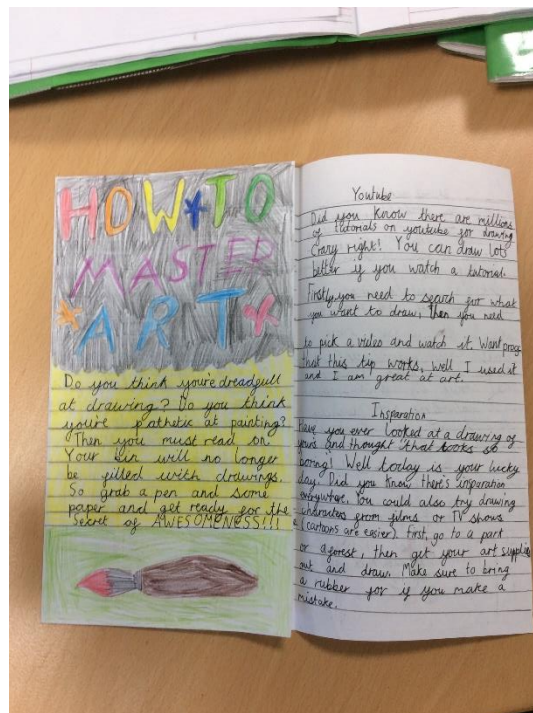 HOW TO
MASTER
ART
Do you think you're dreadgull
at drawing? Do you think
you're pathetic at painting?
Then you must read on
Your bin will no longer
be filled with drawings.
So grab a pen and some
paper and get ready for the
Secret of AWESOMENESS!!!
Youtube
Did you know there are millions
of tutorials on youtube for drawing
Crazy right! You can draw lots
better if you watch a tutorial.
Firstly, you need to search for what
you want to draw, Then you need
to pick a video and watch it. Want proof
that this tip works, well I used it
and I am great at art.
Insparation
Have you ever looked at a drawing of
yours and thought that looks so
boring! Well today is your lucky
day. Did you know there's insparation
everywhere. You could also try drawing
characters from films or TV shows
(cartoons are easier). First, go to a part
or a forest, then get your art supplies
out and draw. Make sure to bring
a rubber for if you make a
mistake.